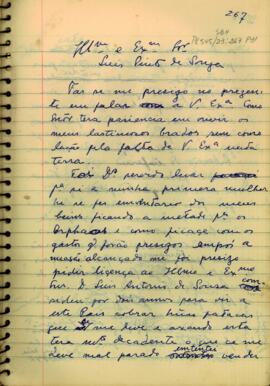 267
Illmo e Exmo Snr
Luis Pinto de Souza
Faz se me presizo no prezen
te em falar a V. Exa. Como
terá paciencia em ouvir os
meus lastimozos brados sem conso
lação pla falta de V Exa nesta
terra.
levar
pa si a minha primeira molher
se fez inventario dos meus
beins ficando a metade pa os
Orphaos e como ficaçe com os
gastos q forão presizos
alcançado me foi prezizo
pedir liçença ao Illmo e Exmo
Snr. D. Luis Antonio de Souza
por dois annos para vir a
este Pais cobrar humas
que se me deve e axando esta
terra mto decadente o que se me
deve mal parado vender